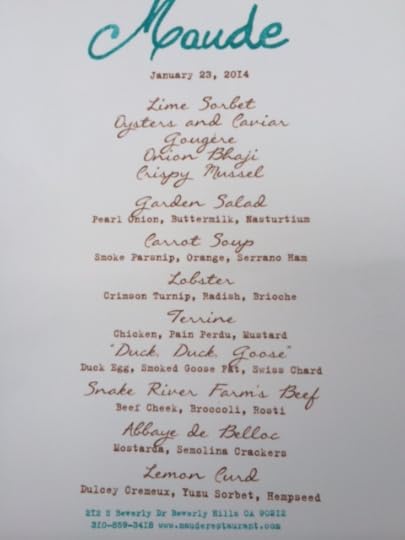 Maude
January 23, 2014
Lime Sorbet
Oysters and Caviar
Gougère
Onion Bhaji
Crispy Mussel
Garden Salad
Pearl Onion, Buttermilk, Nasturtium
Carrot Soup
Smoke Parsnip, Orange, Serrano Ham
Lobster
Crimson Turnip, Radish, Brioche
Terrine
Chicken, Pain Perdu, Mustard
"Duck, Duck, Goose"
Duck Egg, Smoked Goose Fat, Swiss Chard
Snake River Farm's Beef
Beef Cheek, Broccoli, Rosti
Abbaye de Belloc
Mostarda, Semolina Crackers
Lemon Curd
Dulcey Cremeux, Yuzu Sorbet, Hempseed
212 S Beverly Dr Beverly Hills CA 90212
310-859-3418 www.mauderestaurant.com